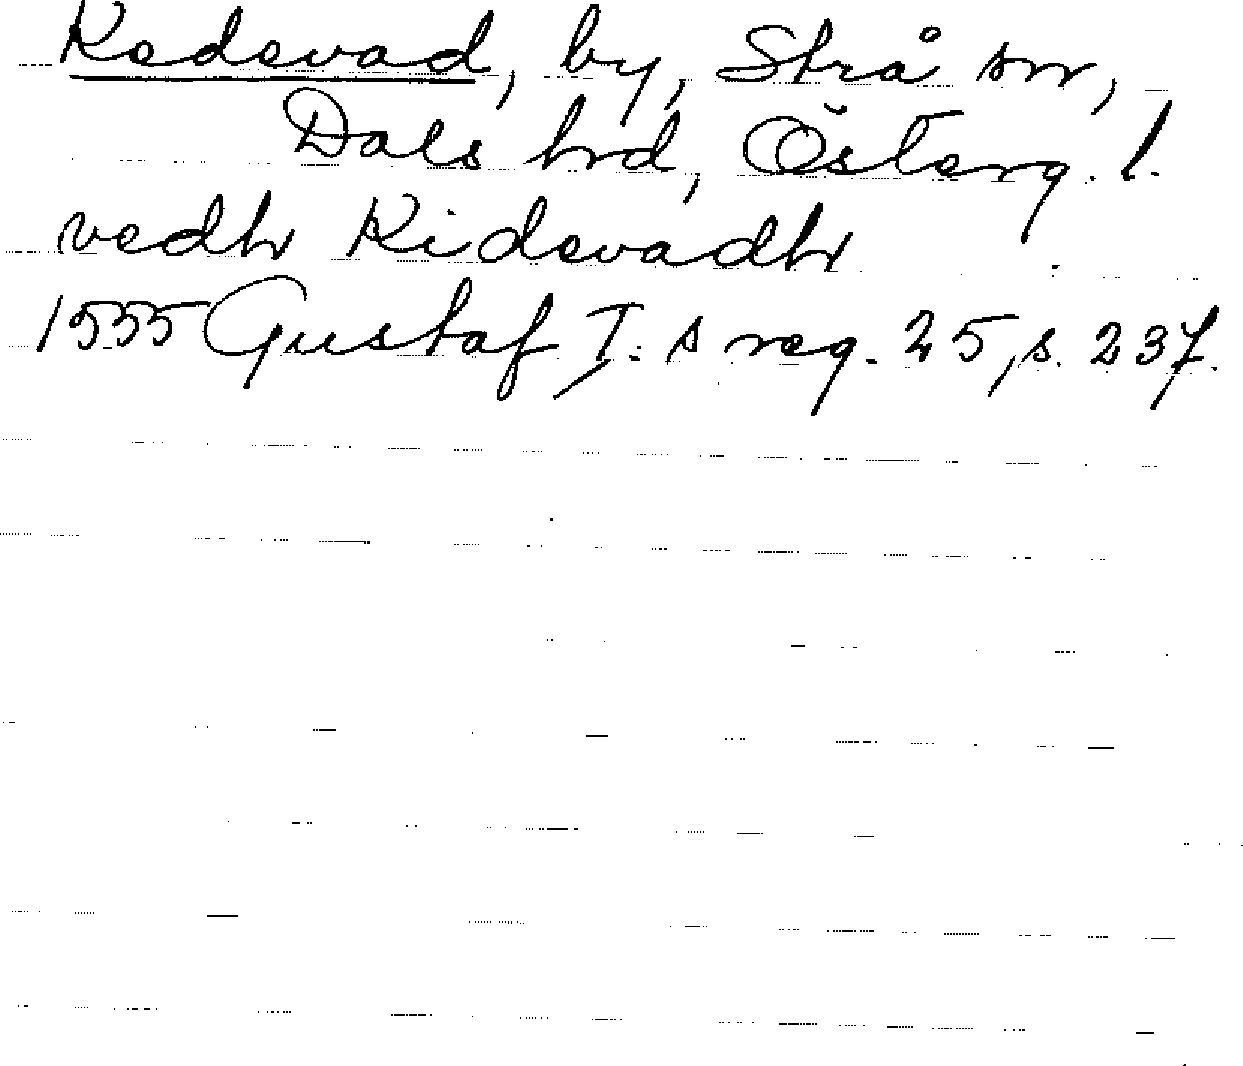 Kedevad, by, Strå sn,
Dals hrd, Österg. l.
vedh Kidevadh
1555 Gustaf I: s reg. 25, s. 237.